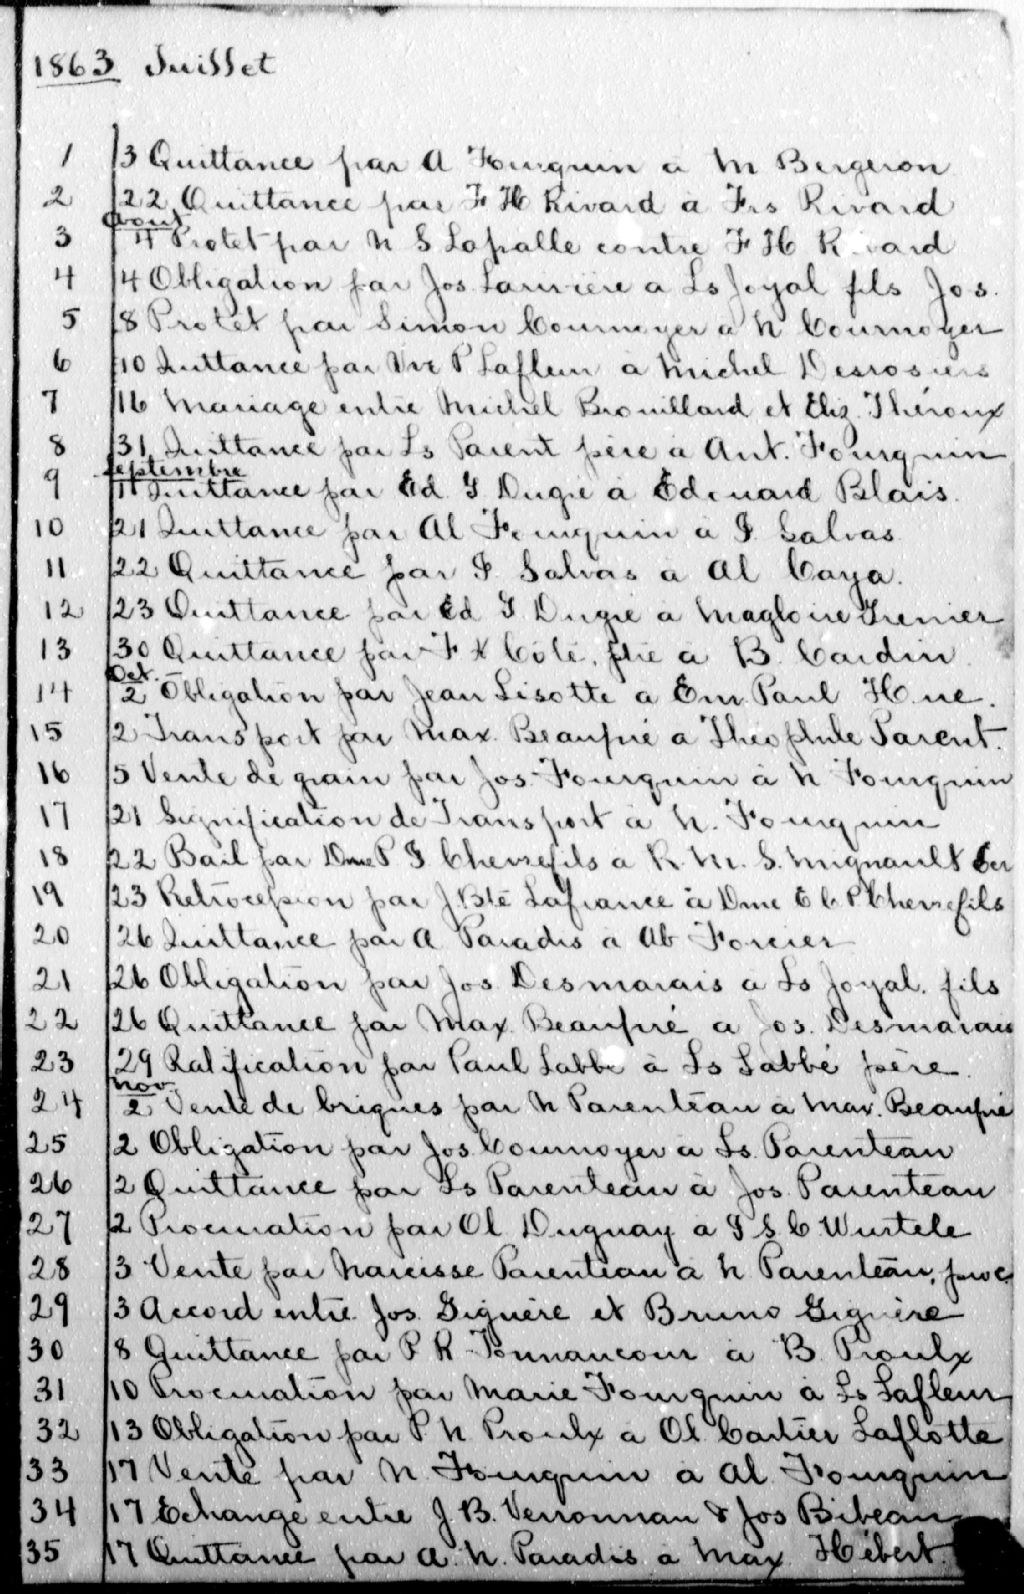 1863 Juillet
1 3 Quittance par A Fourquin à M Bergeron
2 22 Quittance par F H Rivard à Frs Rivard
août
3 4 Protet par N S Lapalle contre F H Rivard
4 4 Obligation par Jos Larivière a Ls Joyal fils Jos.
5 8 Protet par Simon Cournoyer a N Cournoyer
6 10 Quittance par Vve P Lafleur à Michel Desrosiers
7 16 Mariage entre Michel Brouillard et Eliz. Théroux
8 31 Quittance par Ls Parent père a Ant. Fourquin
septembre
9 11 Quittance par Ed. G. Dugré à Edouard Blais.
10 21 Quittance par Al Fourquin à I. Salvas
11 22 Quittance par I. Salvas a Al Caya.
12 23 Quittance par Ed G Dugré a Magloire Grenier
13 30 Quittance par F X Côté, ptre a B. Cardin
Oct.
14 2 Obligation par Jean Lisotte a Em. Paul Hue.
15 2 Transport par Max. Beaupré a Théophile Parent.
16 5 Vente de grain par Jos. Fourquin à N Fourquin
17 21 Signification de Transport à N. Fourquin
18 22 Bail par Dme P G Chevrefils a R. M. S. Mignault
19 23 Retrocession par J. Bte Lafrance à Dme E C P Chevrefils
20 26 Quittance par A Paradis a Ab Forcier
21 26 Obligation par Jos Desmarais a Ls Joyal. fils
22 26 Quittance par Max. Beaupré a Jos. Desmarais
23 29 Ratification par Paul Labbé à Ls Labbé père
nov.
24 2 Vente de briques par N Parenteau a Max. Beaupré
25 2 Obligation par Jos Cournoyer a Ls. Parenteau
26 2 Quittance par Ls Parenteau à Jos Parenteau
27 2 Procuration par Ol Duguay à J S C Wurtele
28 3 Vente par Narcisse Parenteau a N Parenteau, proc.
29 3 Accord entre Jos Giguère et Bruno Giguère
30 8 Quittance par P R Tonnancour à B. Proulx
31 10 Procuration par Marie Fourquin à Ls Lafleur
32 13 Obligation par P. N. Proulx a Ol. Cartier Laflotte
33 17 Vente par N. Fourquin a Al Fourquin
34 17 Echange entre J. B. Verronnau & Jos Bibeau
35 17 Quittance par A. N. Paradis a Max Hébert.